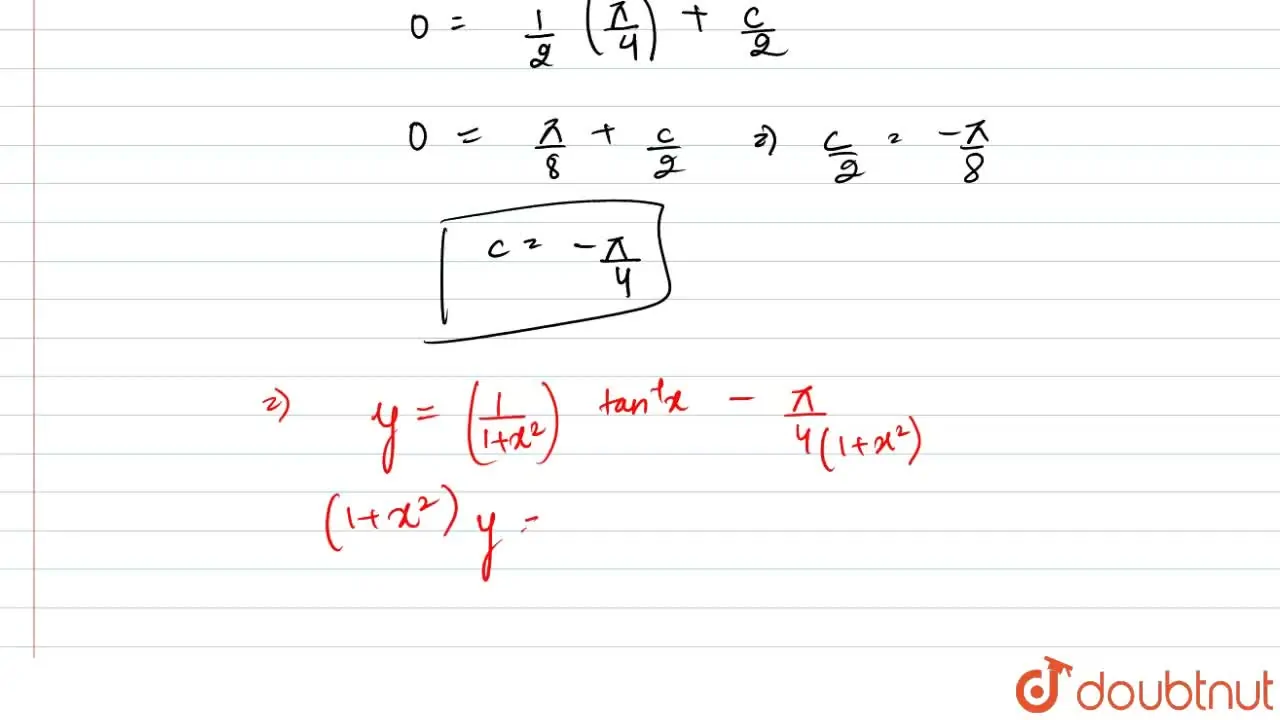 0 = 1/2 (π/4) + c/2
0 = π/8 + c/2 ⇒ c/2 = -π/8
c = -π/4
⇒ y = (1/(1+x²)) tan⁻¹x - π/4(1+x²)
(1+x²) y =
doubtnut